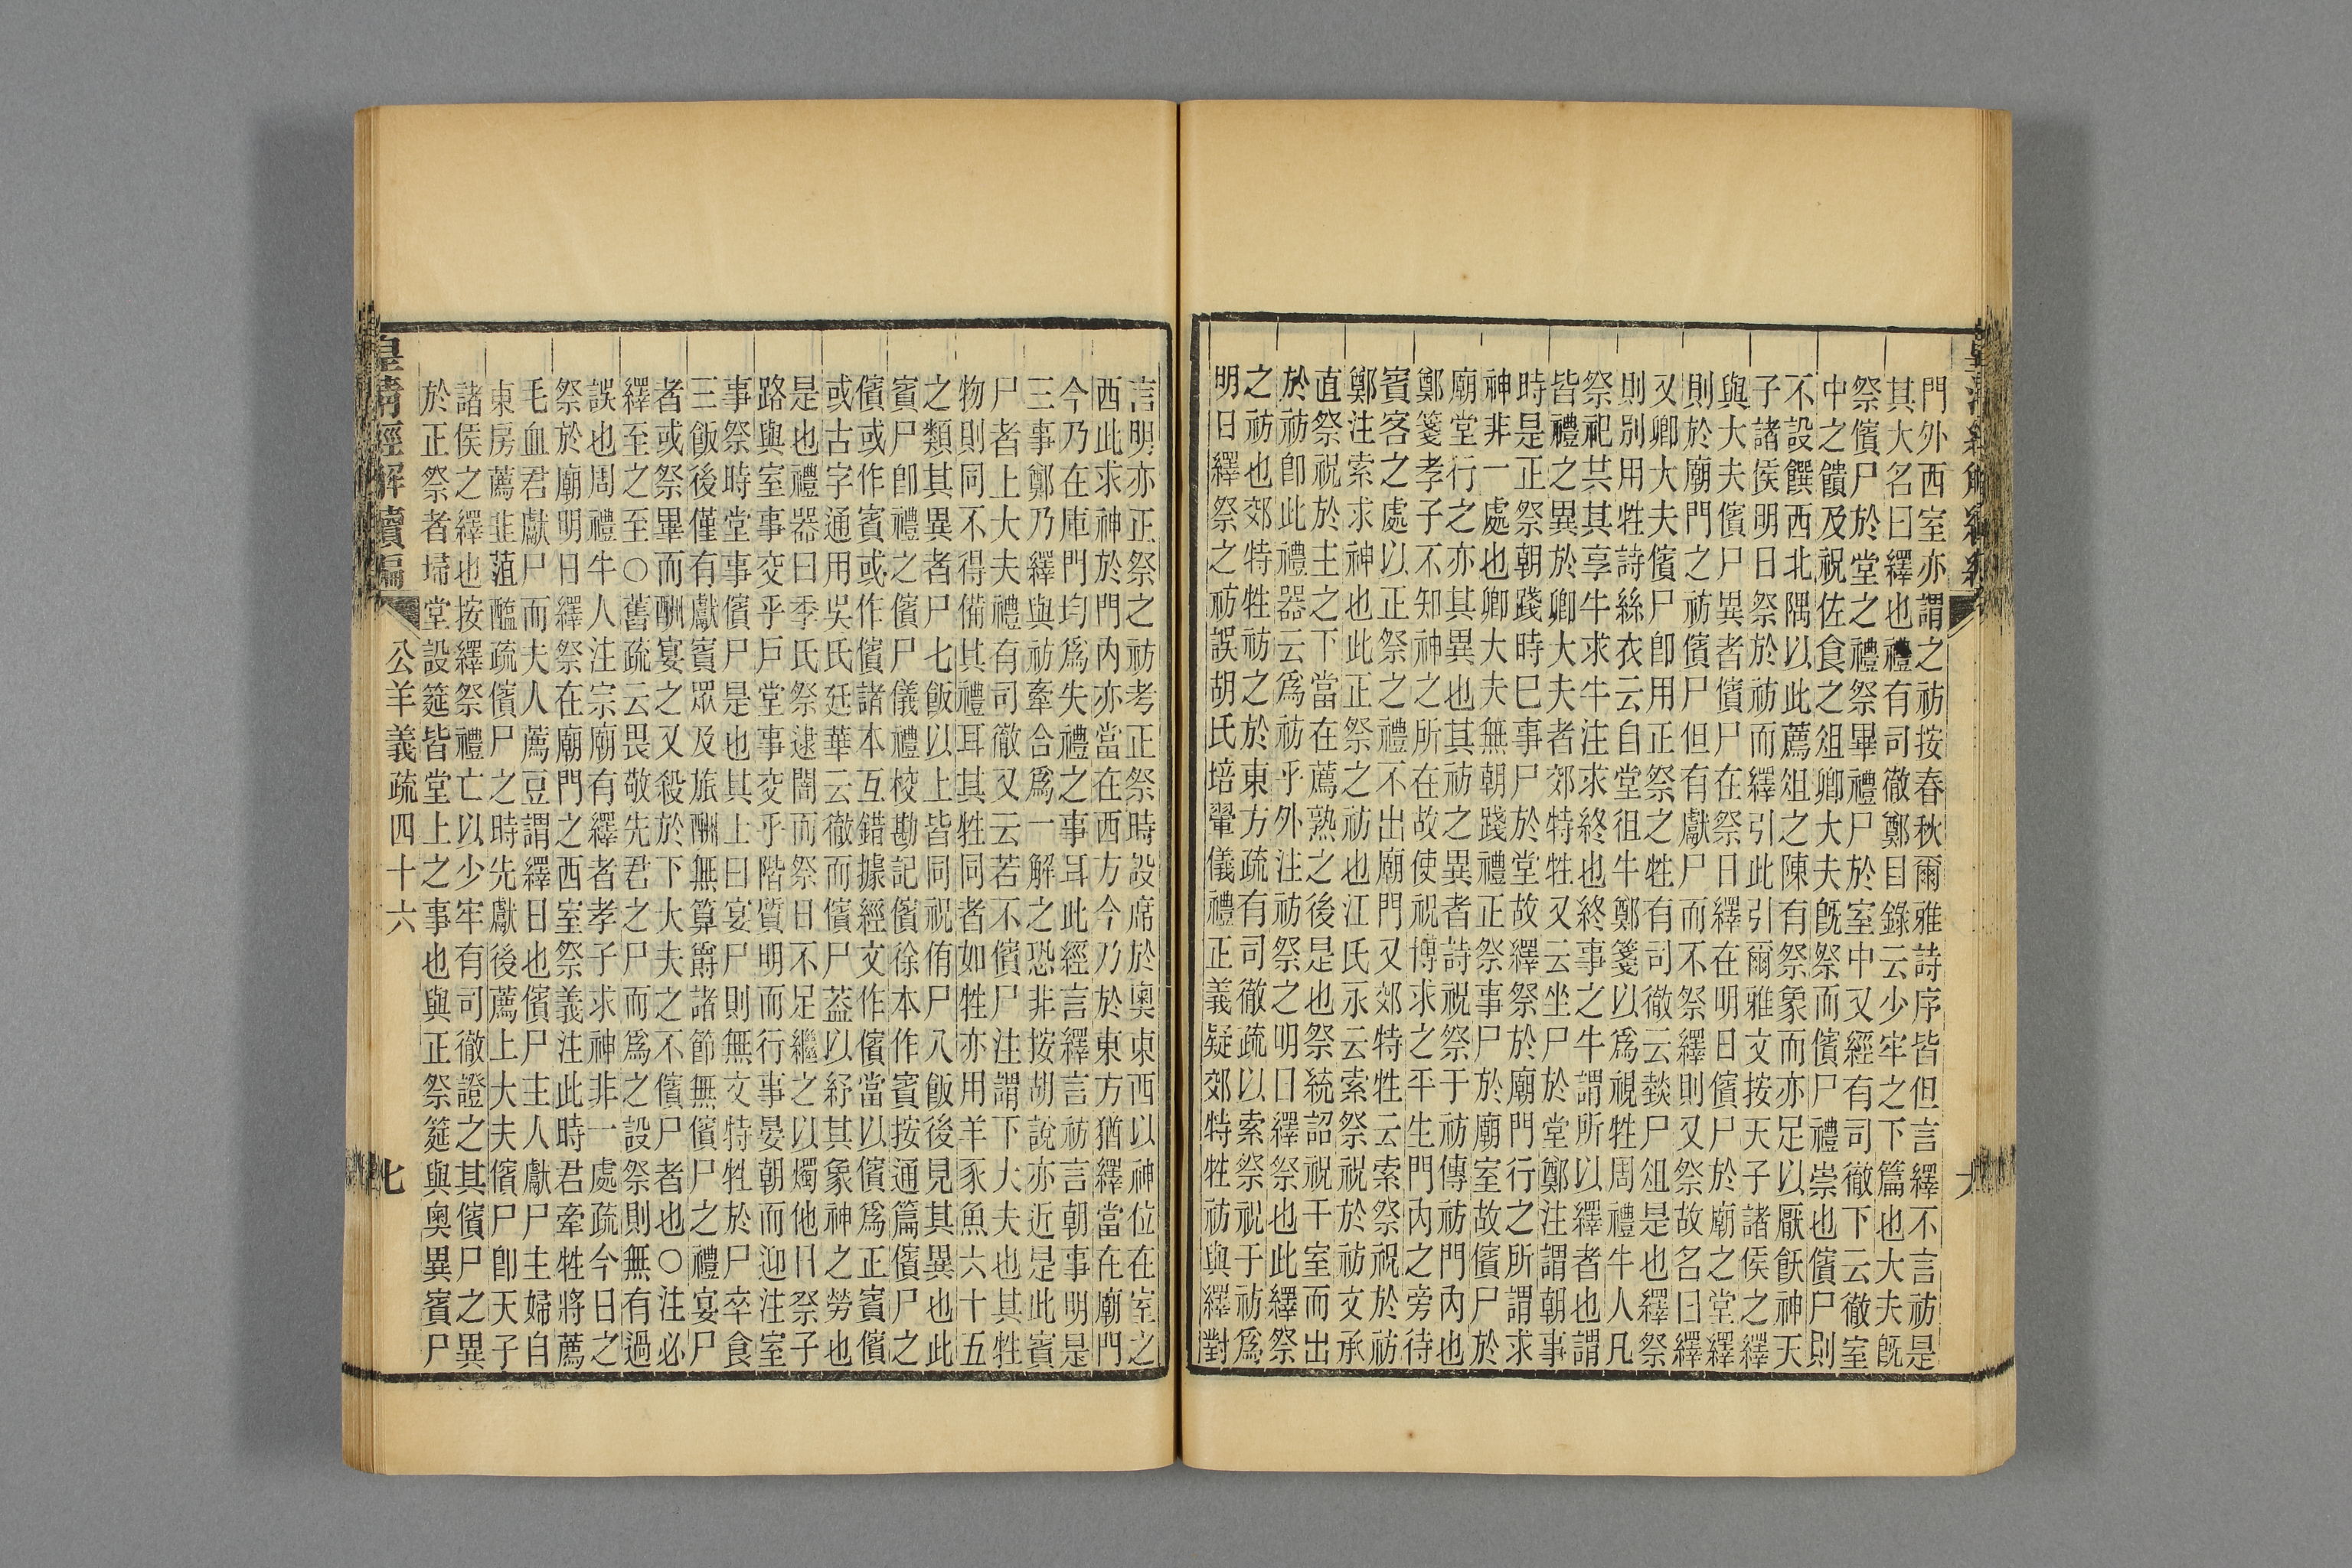 門外西室亦謂之祊按春秋爾雅詩序皆但言繹不言祊是
其大名曰繹也禮有司徹鄭目錄云少牢之下篇也大夫既
祭儐尸於堂之禮祭畢禮尸於室中又經有司徹下云徹室
中之饋及祝佐食之俎卿大夫既祭而儐尸禮崇也儐尸則
不設饌西北隅以此薦俎之陳有祭象而亦足以厭飫神天
子諸侯明日祭於祊而繹引此引爾雅文按天子諸侯之繹
與大夫儐尸異者儐尸在祭日繹在明日儐尸於廟之堂繹
則於廟門之祊儐尸但有獻尸而不祭繹則又祭故名曰繹
又卿大夫儐尸卽用正祭之牲有司徹云燅尸俎是也繹祭
則別用牲詩絲衣云自堂徂牛鄭箋以爲視牲周禮牛人凡
祭祀共其享牛求牛注求終也終事之牛謂所以繹者也謂
皆禮之異於卿大夫者郊特牲又云坐尸於堂鄭注謂朝事
時是正祭朝踐時巳事尸於堂故繹祭於廟門行之所謂求
神非一處也卿大夫無朝踐禮正祭事尸於廟室故儐尸於
廟堂行之亦其異也其祊之異者詩祝祭于祊傳祊門內也
鄭箋孝子不知神之所在故使祝博求之平生門內之旁待
賓客之處以正祭之禮不出廟門又郊特牲云索祭祝於祊
鄭注索求神也此正祭之祊也江氏永云索祭祝於祊文承
直祭祝於主之下當在薦熟之後是也祭統詔祝于室而出
於祊卽此禮器云爲祊乎外注祊祭之明日繹祭也此繹祭
之祊也郊特牲祊之於東方疏有司徹疏以索祭祝于祊爲
明日繹祭之祊誤胡氏培翬儀禮正義疑郊特牲祊與繹對
言明亦正祭之祊考正祭時設席於奧東西以神位在室之
西此求神於門內亦當在西方今乃於東方猶繹當在廟門
今乃在庫門均爲失禮之事耳此經言繹言祊言朝事明是
三事鄭乃繹與祊牽合爲一解之恐非按胡說亦近是此賓
尸者上大夫禮有司徹又云若不儐尸注謂下大夫也其牲
物則同不得備其禮耳其牲同者如牲亦用羊豕魚六十五
之類其異者尸七飯以上皆同祝侑尸八飯後見其異也此
賓尸卽禮之儐尸儀禮校勘記儐徐本作賓按通篇儐尸之
儐或作賓或作儐諸本互錯據經文作儐當以儐爲正賓儐
或古字通用吳氏廷華云徹而儐尸葢以紓其象神之勞也
是也禮器曰季氏祭逮闇而祭日不足繼之以燭他日祭子
路與室事交乎戶堂事交乎階質明而行事晏朝而迎注室
事祭時堂事儐尸是也其上曰宴尸則無文特牲於尸卒食
三飯後僅有獻賓眾及旅酬無算爵諸節無儐尸之禮宴尸
者或祭畢而酬宴之又殺於下大夫之不儐尸者也○注必
繹至之至○舊疏云畏敬先君之尸而爲之設祭則無有過
誤也周禮牛人注宗廟有繹者孝子求神非一處疏今日之
祭於廟明日繹祭在廟門之西室祭義注此時君牽牲將薦
毛血君獻尸而夫人薦豆謂繹日也儐尸主人獻尸主婦自
東房薦韭菹醢疏儐尸之時先獻後薦上大夫儐尸卽天子
諸侯之繹也按繹祭禮亡以少牢有司徹證之其儐尸之異
於正祭者埽堂設筵皆堂上之事也與正祭筵與奧異賓尸
皇清經解續編
公羊義疏四十六
七